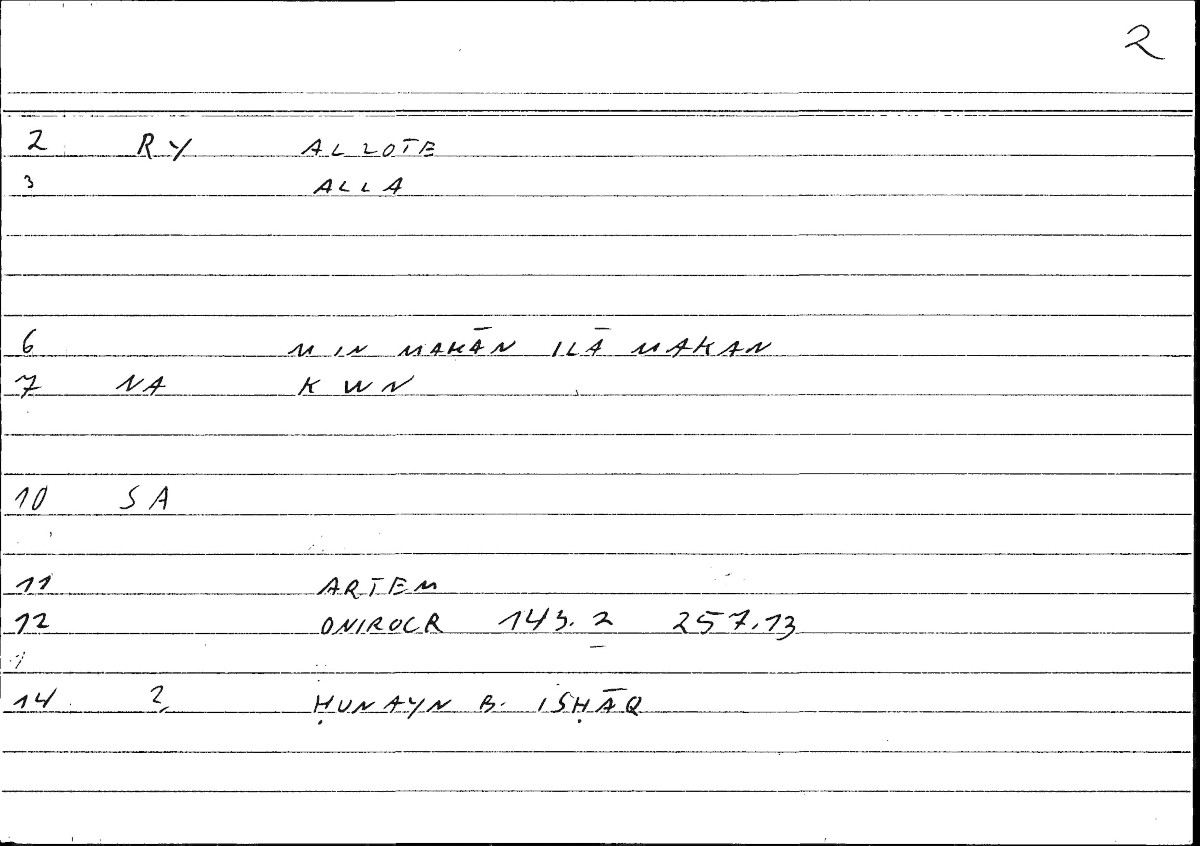 2
2 RY ALLOTE
3 ALLA
6 MIN MAKĀN ILĀ MAKAN
7 NA KWN
10 SA
11 ARTEM
12 ONIROCR 143.2 257.13
14 2. ḤUNAYN B. ISḤĀQ